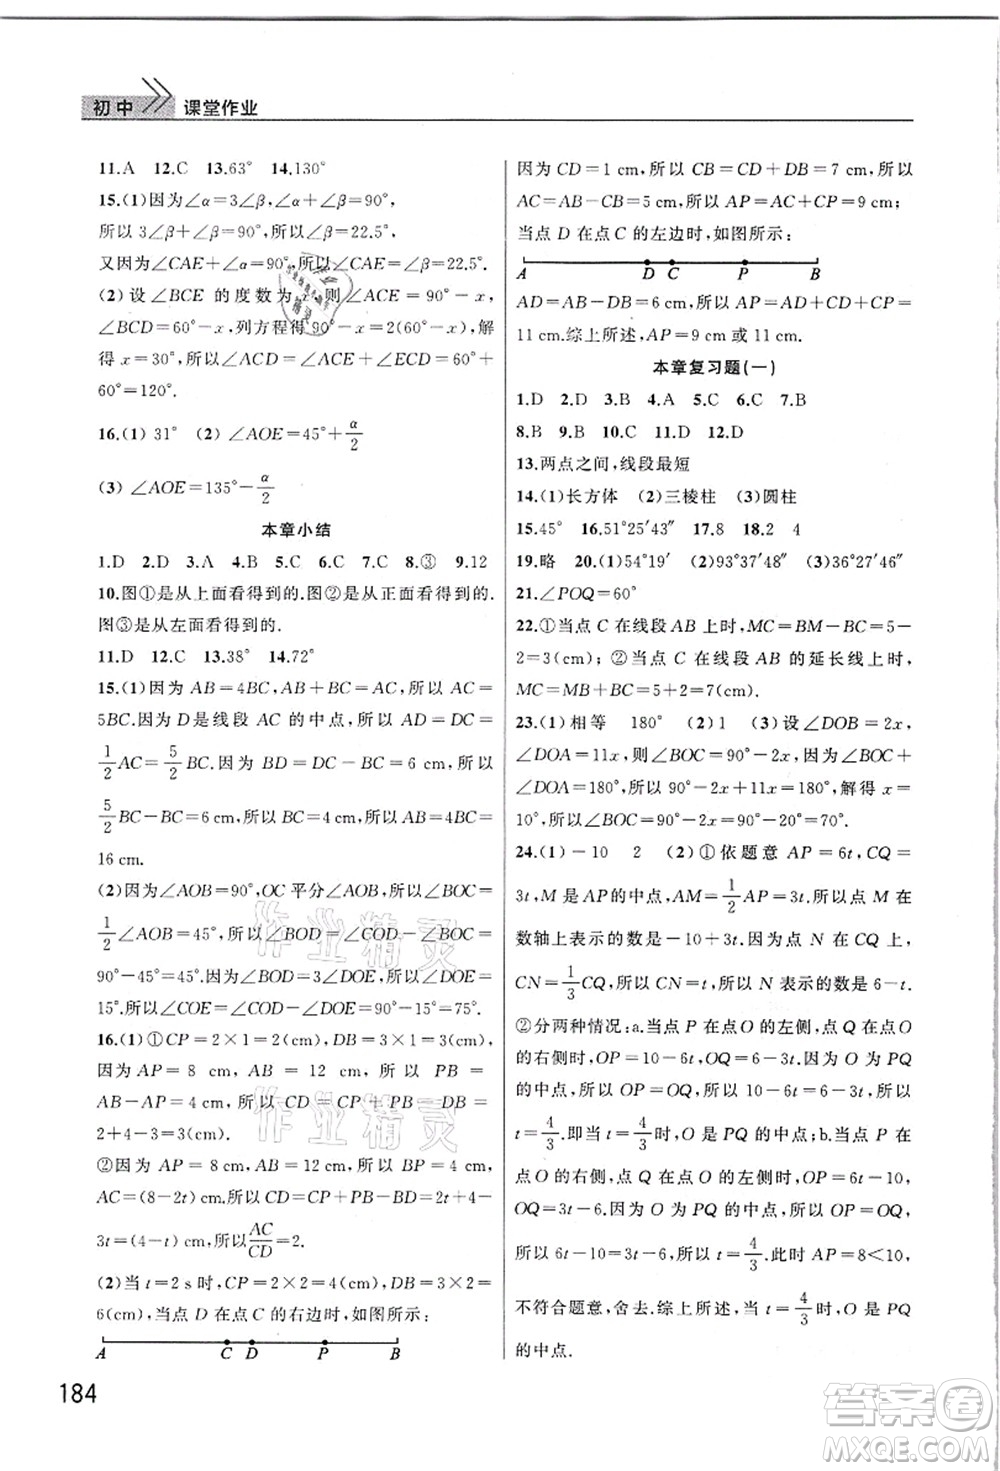 初中 课堂作业
11.A 12.C 13.63° 14.130°
15.(1)因为∠α=3∠β,∠α+∠β=90°,
所以 3∠β+∠β=90°,所以∠β=22.5°.
又因为∠CAE+∠α=90°,所以∠CAE=∠β=22.5°.
(2)设∠BCE 的度数为 x,则∠ACE=90°-x,
∠BCD=60°-x,列方程得90°-x=2(60°-x),解
得 x=30°,所以∠ACD=∠ACE+∠ECD=60°+
60°=120°.
16.(1) 31° (2) ∠AOE=45°+α/2
(3) ∠AOE=135°-α/2
本章小结
1.D 2.D 3.A 4.B 5.B 6.C 7.C 8.③ 9.12
10.图①是从上面看得到的.图②是从正面看得到的.
图③是从左面看得到的.
11.D 12.C 13.38° 14.72°
15.(1)因为 AB=4BC,AB+BC=AC,所以 AC=
5BC.因为 D是线段 AC 的中点,所以 AD=DC=
1/2AC=5/2BC.因为 BD=DC-BC=6 cm,所以
5/2BC-BC=6 cm,所以 BC=4 cm,所以 AB=
16 cm.
(2)因为∠AOB=90°,OC 平分∠AOB,所以∠BOC=
1/2∠AOB=45°,所以∠BOD=∠COD-∠BOC=
90°-45°=45°.因为∠BOD=3∠DOE,所以∠DOE=
15°.所以∠COE=∠COD-∠DOE=90°-15°=75°.
16.(1)①CP=2×1=2(cm),DB=3×1=3(cm).
因为 AP=8 cm,AB=12 cm,所以 PB=
AB-AP=4 cm,所以 CD=CP+PB-DB=
2+4-3=3(cm).
②因为 AP=8 cm,AB=12 cm,所以 BP=4 cm,
AC=(8-2t) cm,所以CD=CP+PB-DB=2t+4-
3t=(4-t) cm,所以AC/CD=2.
(2)当 t=2 s时,CP=2×2=4(cm),DB=3×2=
6(cm).当点 D 在点 C 的右边时,如图所示:
A C D P B
184
因为 CD=1 cm,所以 CB=CD+DB=7 cm,所以
AC=AB-CB=5 cm,所以 AP=AC+CP=9 cm;
当点 D 在点 C 的左边时,如图所示:
A D C P B
AD=AB-DB=6 cm,所以 AP=AD+CD+CP=
11 cm.综上所述,AP=9 cm 或 11 cm.
本章复习题(一)
1.D 2.D 3.B 4.A 5.C 6.C 7.B
8.B 9.B 10.C 11.D 12.D
13.两点之间,线段最短
14.(1)长方体 (2)三棱柱 (3)圆柱
15.45° 16.51°25′43″ 17.8 18.2 4
19.略 20.(1)54°19′ (2)93°37′48″ (3)36°27′48″
21.∠POQ=60°
22.①当点 C 在线段 AB 上时,MC=BM-BC=5-
2=3(cm);②当点 C 在线段 AB 的延长线上时,
MC=MB+BC=5+2=7(cm).
23.(1)相等 180° (2)1 (3)设∠DOB=2x,
∠DOA=11x,则∠BOC=90°-2x,所以∠BOC+
∠DOA=180°,所以 90°-2x+11x=180°,解得 x=
10°,所以∠BOC=90°-2x=90°-20°=70°.
24.(1)-10 2 (2)①依题意 AP=6t,CQ=
3t,M 是AP的中点,AM=1/2AP=3t,所以点 M 在
数轴上表示的数是-10+3t,因为点 N 在 CQ 上,
CN=1/3CQ,所以 CN=t,所以 N 表示的数是 6-t.
②分两种情况:a.当点 P 在点O 的左侧,点 Q 在点O
的右侧时,OP=10-6t,OQ=6-3t.因为 O 为 PQ
的中点,所以 OP=OQ,所以 10-6t=6-3t,所以
t=4/3.即当 t=4/3时,O 是 PQ 的中点;b.当点 P 在
点O 的右侧,点 Q 在点 O 的左侧时,OP=6t-10,
OQ=3t-6.因为 O 为 PQ 的中点,所以OP=OQ,
所以 6t-10=3t-6,所以 t=4/3.此时 AP=8<10,
不符合题意,舍去.综上所述,当 t=4/3时,O 是 PQ
的中点.
作业精灵
作业精灵
答案圈
MXQE.COM